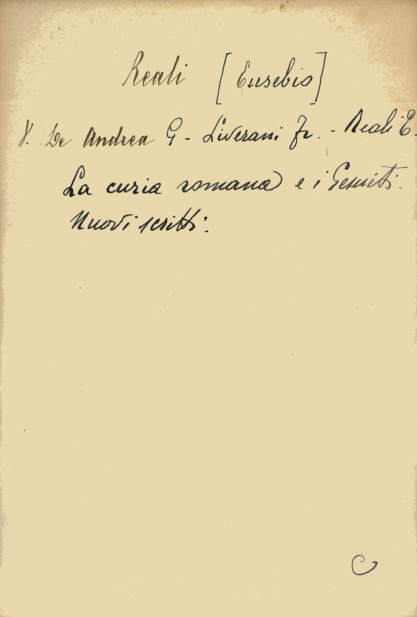 Reali [Eusebio]
V. De Andrea G - Liverani Fr. - Reali E.
La curia romana e i Gesuiti.
Nuovi scritti.
C